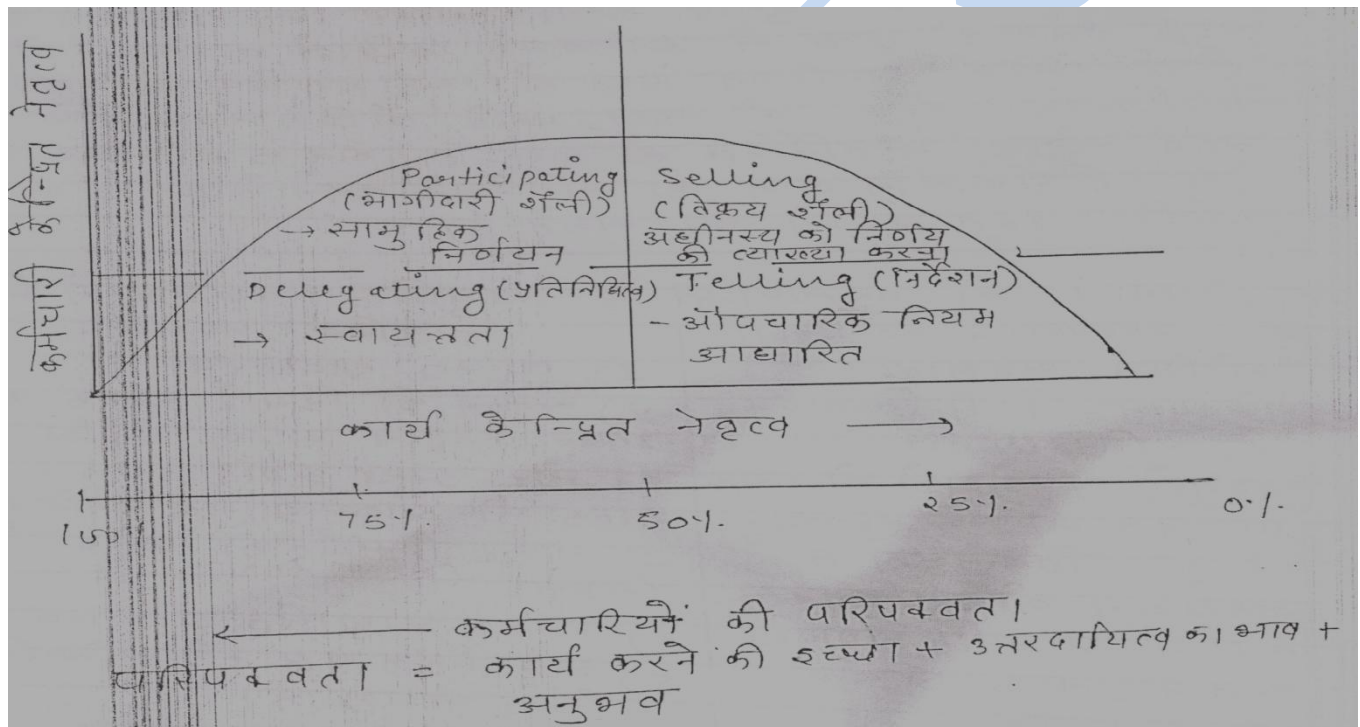 कर्मचारी केन्द्रित नेतृत्व
Participating
(भागीदारी शैली)
→ सामुहिक
निर्णयन
Selling
(विक्रय शैली)
अधीनस्थ को निर्णय
की व्याख्या करना
Delegating (प्रतिनिधित्व)
→ स्वायत्तता
Telling (निर्देशन)
- औपचारिक नियम
आधारित
कार्य केन्द्रित नेतृत्व →
100 75% 50% 25% 0%
← कर्मचारियों की परिपक्वता
परिपक्वता = कार्य करने की इच्छा + उत्तरदायित्व का भाव +
अनुभव